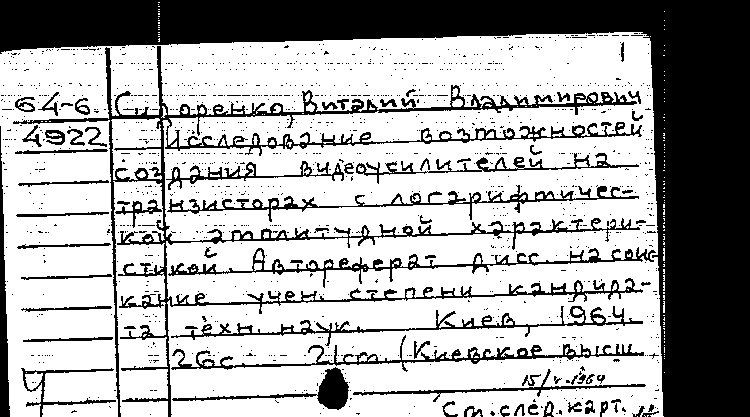 1
64-6 Сидоренко, Виталий Владимирович
4922 Исследование возможностей
создания видеоусилителей на
транзисторах с логарифмичес-
кой амплитудной характери-
стикой. Автореферат дисс. на соис-
кание учен. степени кандида-
та техн. наук. Киев, 1964.
26с. 21см. (Киевское высш.
15/V-1964
Ч
См. след. карт.